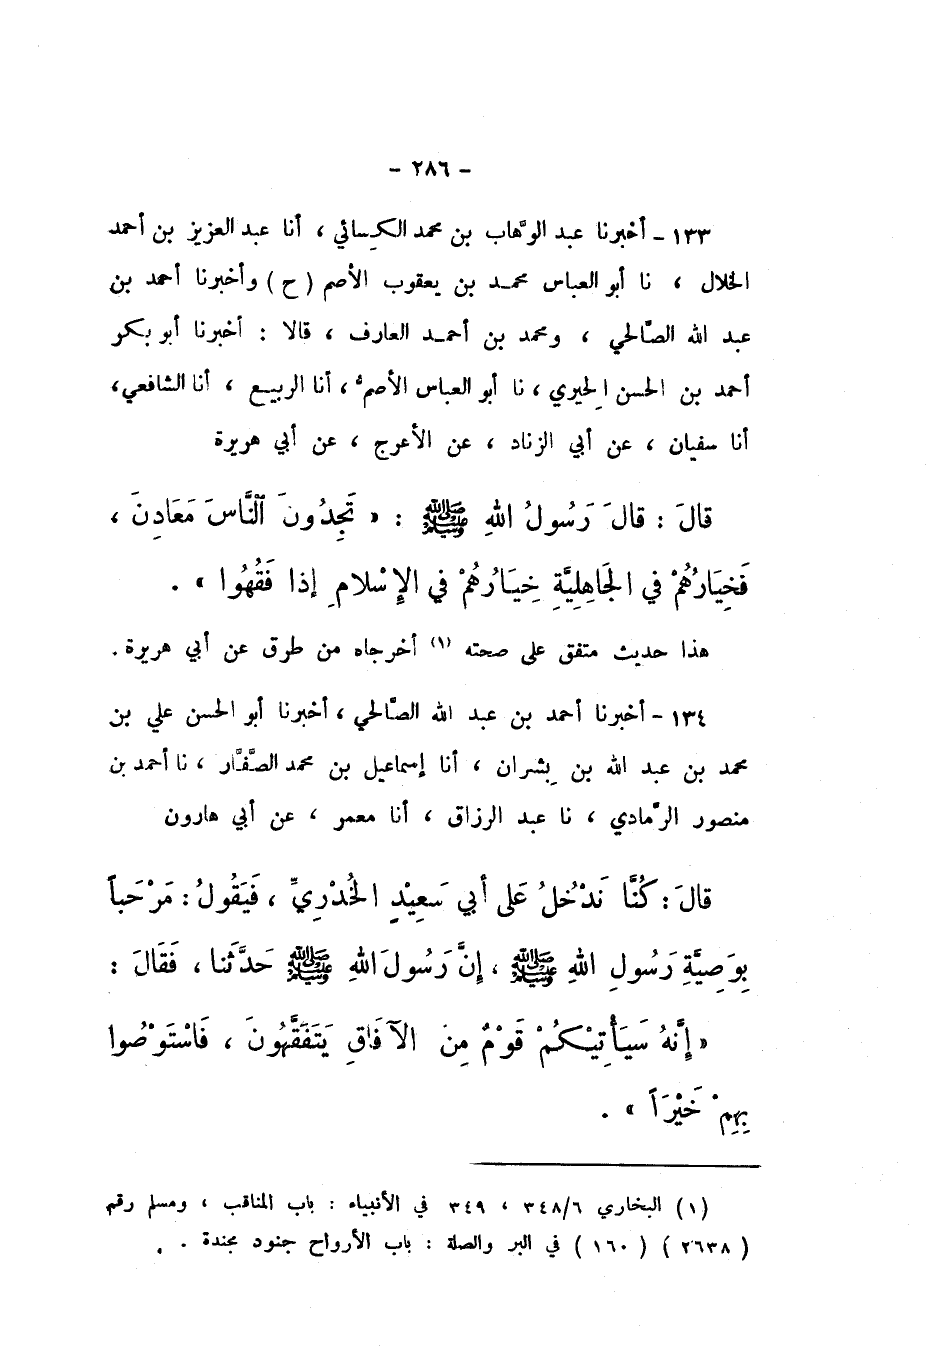 - ٢٨٦ -
١٣٣ - أخبرنا عبد الوهَّاب بن محمد الكِسائي ، أنا عبد العزيز بن أحمد
الخلال ، نا أبو العباس محمد بن يعقوب الأصم (ح) وأخبرنا أحمد بن
عبد الله الصَّالحي ، ومحمد بن أحمد العارف ، قالا : أخبرنا أبو بكر
أحمد بن الحسن الحِيري ، نا أبو العباس الأصمُّ ، أنا الربيع ، أنا الشافعي،
أنا سفيان ، عن أبي الزناد ، عن الأعرج ، عن أبي هريرة
قالَ : قالَ رَسُولُ اللهِ ﷺ : « تَجِدُونَ ٱلنَّاسَ مَعَادِنَ ،
فَخِيَارُهُمْ في الجَاهِلِيَّةِ خِيَارُهُمْ في الإِسْلامِ إذا فَقُهُوا » .
هذا حديث متفق على صحته (١) أخرجاه من طرق عن أبي هريرة .
١٣٤ - أخبرنا أحمد بن عبد الله الصَّالحي ، أخبرنا أبو الحسن علي بن
محمد بن عبد الله بن بِشران ، أنا إسماعيل بن محمد الصَّفَّار ، نا أحمد بن
منصور الرَّمادي ، نا عبد الرزاق ، أنا معمر ، عن أبي هارون
قالَ : كُنَّا نَدْخُلُ عَلى أبي سَعِيْدٍ الخُدْرِيِّ ، فَيَقُولُ : مَرْحَباً
بِوَصِيَّةِ رَسُولِ اللهِ ﷺ ، إنَّ رَسُولَ اللهِ ﷺ حَدَّثَنا ، فَقَالَ :
« إنَّهُ سَيَأْتِيْكُمْ قَوْمٌ مِنَ الآفَاقِ يَتَفَقَّهُونَ ، فَاسْتَوْصُوا
بِهِمْ خَيْرَاً » .
(١) البخاري ٣٤٨/٦ ، ٣٤٩ في الأنبياء : باب المناقب ، ومسلم رقم
( ٢٦٣٨ ) ( ١٦٠ ) في البر والصلة : باب الأرواح جنود مجندة .